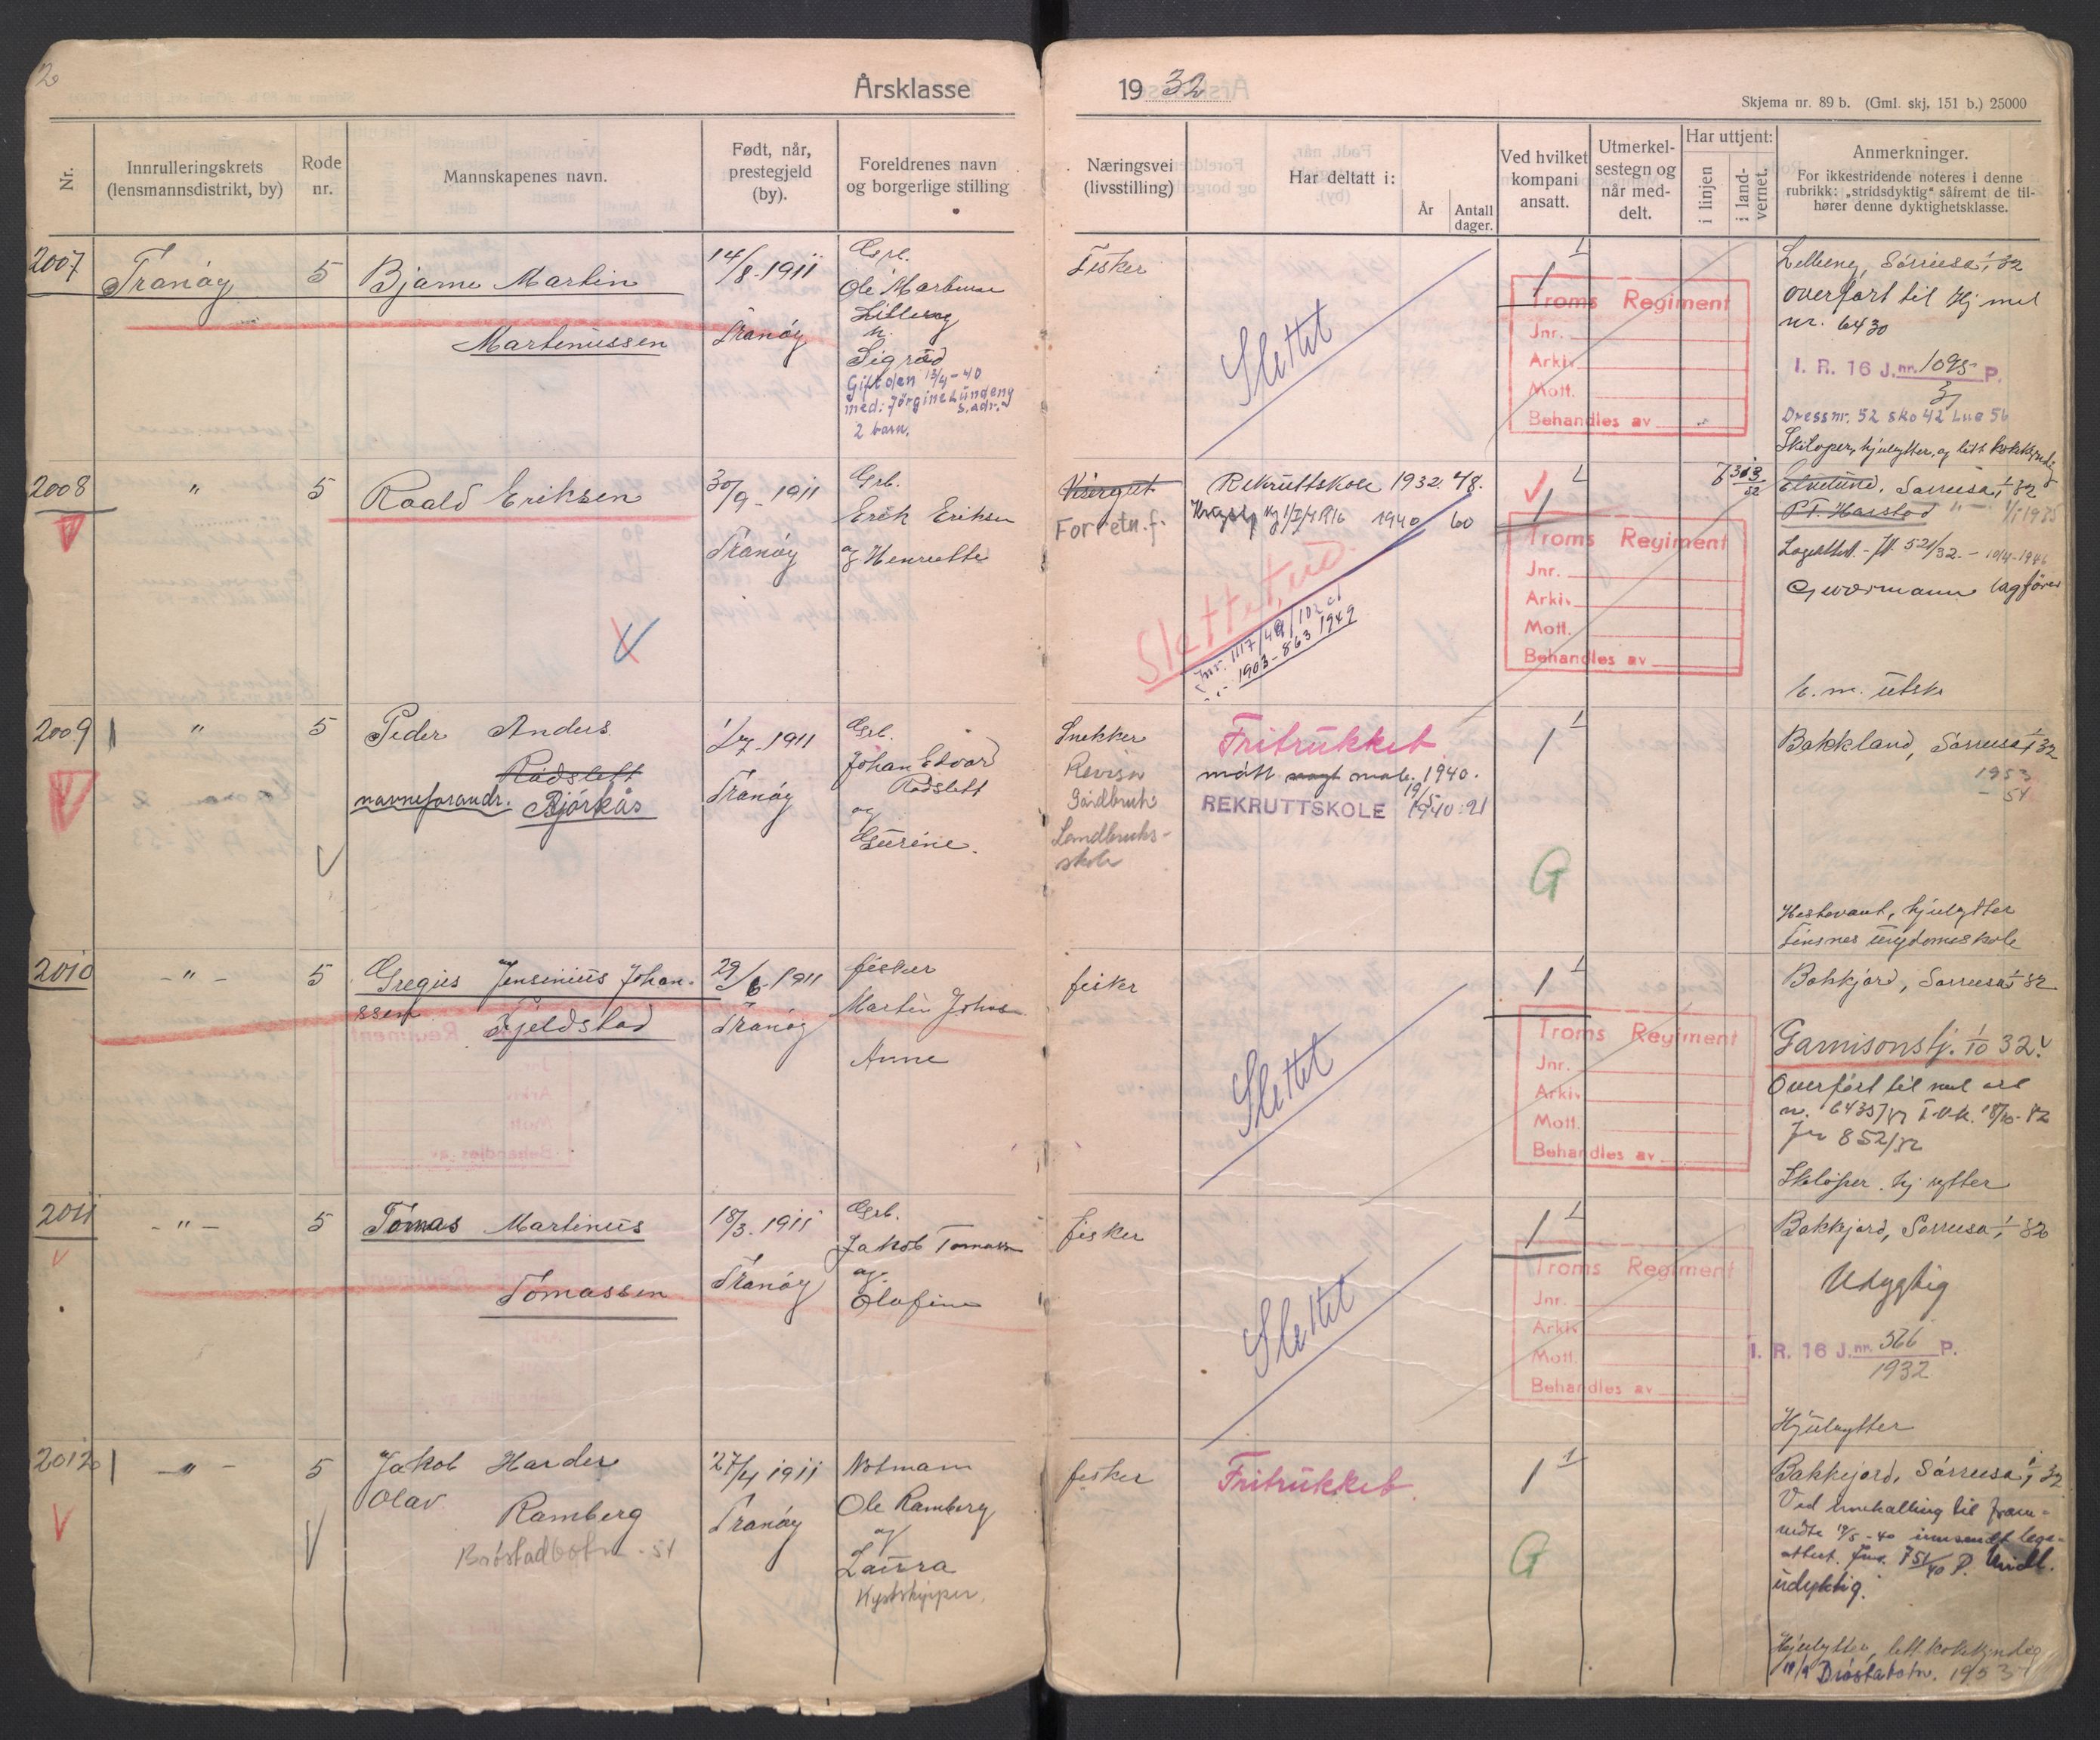 2
Årsklasse
1932
Skjema nr. 89 b. (Gml. skj. 151 b.) 25000
Nr.
Innrulleringskrets
(lensmannsdistrikt, by)
Rode
nr.
Mannskapenes navn.
Født, når,
prestegjeld
(by).
Foreldrenes navn
og borgerlige stilling
Næringsvei
(livsstilling)
Har deltatt i:
År
Antall
dager.
Ved hvilket
kompani
ansatt.
Utmerkel-
sestegn og
når med-
delt.
Har uttjent:
i linjen
i land-
vernet.
Anmerkninger.
For ikkestridende noteres i denne
rubrikk: „stridsdyktig" såfremt de til-
hører denne dyktighetsklasse.
2007
Tranöy
5
Bjarne Martin
Martinussen
14/8-1911
Tranöy
Ole
Sigrid
Gift den 13/4-40
med: Jörgine Lundeng
s. adr.
2 barn.
Fisker
Slettet
1
1
Troms Regiment
Jnr.
Arkiv
Mott.
Behandles av
overført til Hj
nr. 6430
I. R. 16 J.nr. 1095 P.
Dressnr. 52 sko 42 Lue 56
Skiløper, hjulrytter, og litt kokekyndig
2008
"
5
Roald Eriksen
30/9-1911
Tranöy
Grb.
Erik Eriksen
og Henriette
Visergut
Forretn.f.
Rekruttskole 1932. 48.
1940 60
Slettet, ud.
Jnr. 1117/49/102
1903-863 1949
1
Troms Regiment
Jnr.
Arkiv
Mott.
Behandles av
P.T. Harstad
lagfører
2009
"
5
Peder Anders
Rödslett
navneforandr. Björkås
1/7-1911
Tranöy
Grb.
Johan Edvard
Rödslett
og
Gurine.
Snekker
Revisor
Gårdbruk
Landbruks-
skole
Fritrukket
møtt 1940.
REKRUTTSKOLE 19/5 1940:21
1
1
G
Bakkland, Sørreisa 1/1 32
1953
- 54
Hestevant, hjulrytter
Finsnes ungdomsskole
2010
- " -
5
Gregus Jensenius Johan-
ssen
Fjeldstad
29/6-1911
Tranöy
fisker
Martin
Anne
fisker
Slettet
1
1
Troms Regiment
Jnr.
Arkiv
Mott.
Behandles av
Bakkjord, Sørreisa 1/1 32
Garnisonstj. 1/10 32.
Overført til
Jnr 852/32
Skiløper. hj rytter
2011
- " -
5
Tomas Martinus
Tomassen
18/3. 1911
Tranöy
Grb.
Jakob
og
Olafine
fisker
Slettet
1
1
Troms Regiment
Jnr.
Arkiv
Mott.
Behandles av
Bakkjord, Sørreisa 1/1 32
Udygtig
I. R. 16 J.nr. 566 P.
1932
Hjulrytter
2012
- " -
5
Jakob Harder
Olav
Ramberg
Bröstadbotn - 54
27/4 1911
Tranöy
Notmann
Ole Ramberg
og
Laura
Kystskipper.
fisker
Fritrukket.
1
1
G
Bakkejord, Sørreisa 1/1 32
Ved innkalling til frem-
møte 19/5-40 innsendt lege-
attest. Jnr. 751/40 P.
udyktig.
Hjulrytter, litt kokekyndig
Bröstabotn. 1953